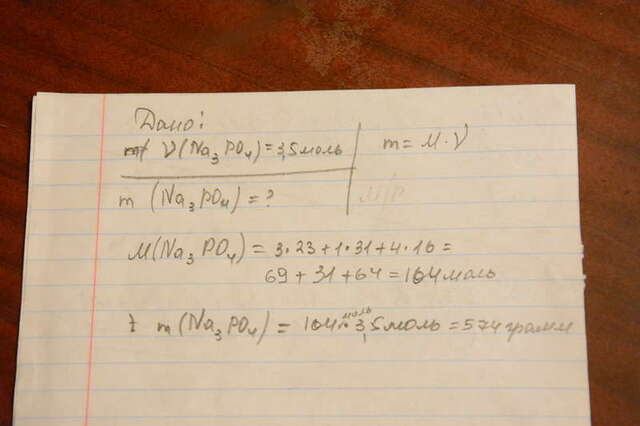 Дано:
ν(Na₃PO₄) = 3,5 моль
m = M·ν
m (Na₃PO₄) = ?
M(Na₃PO₄) = 3·23+1·31+4·16 =
69+31+64 = 164 моль
m(Na₃PO₄) = 164 моль · 3,5 моль = 574 грамм